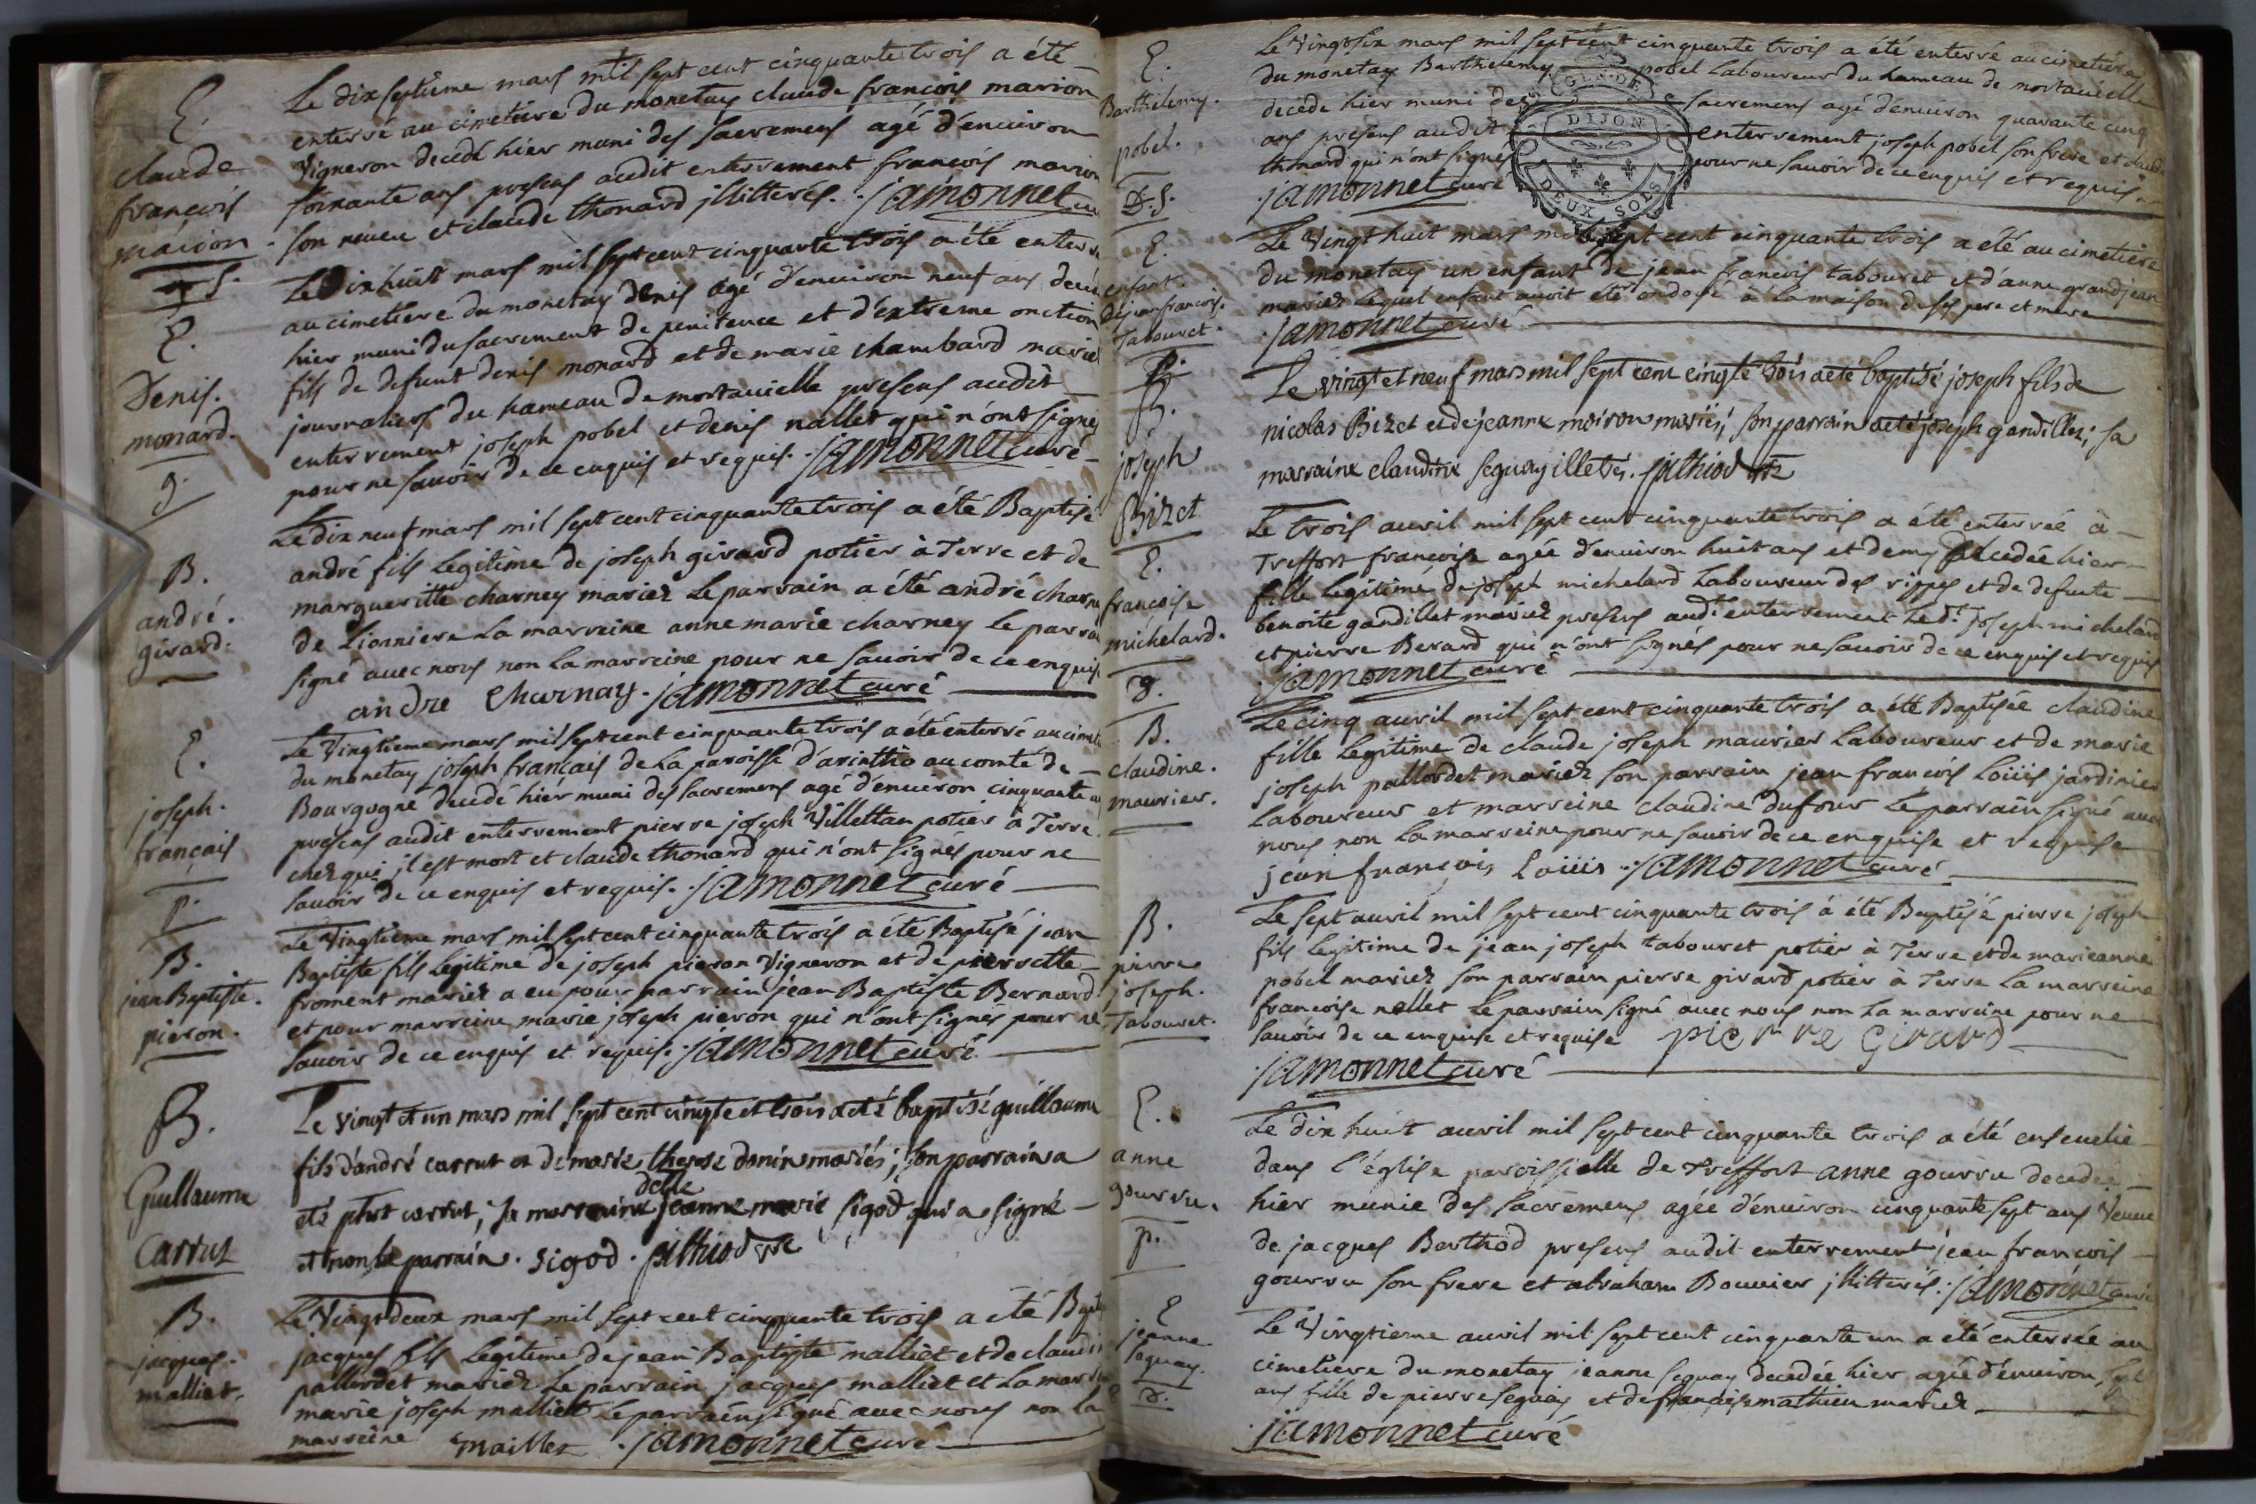 E.
claude
francois
marion.
S.
Le dix septieme mars mil sept cent cinquante trois a été
enterré au cimetiere du monetay claude francois marion
vigneron decedé hier muni des sacremens agé d'environ
soixante ans presens audit enterrement francois marion
son neveu et claude thonard jllitteres. jamonnet cu
E.
Denis.
monard.
g.
Le Dix huit mars mil sept cent cinquante trois a été enterré
au cimetiere du monetay denis agé d'environ neuf ans decé
hier muni du sacrement de penitence et d'extreme onction
fils de defunt denis monard et de marie chambard mariés
journaliers du hameau de mortavielle presens audit
enterrement joseph pobel et denis nallet qui n'ont signés
pour ne savoir de ce enquis et requis. jamonnet curé
B.
andré.
girard.
Le dix neuf mars mil sept cent cinquante trois a été Baptisé
andré fils legitime de joseph girard potier à Terre et de
margueritte charney mariez le parrain a été andré charne
de Lionniere la marreine anne marie charney le parra
signé avec nous non la marreine pour ne savoir de ce enquis
andre Charnay. jamonnet curé
E.
joseph.
francais
p.
Le Vingtieme mars mil sept cent cinquante trois a été enterré au cimet
du monetay joseph francais de la paroisse d'arintho au comté de
Bourgogne decedé hier muni des sacremens agé d'environ cinquante
presens audit enterrement pierre joseph Villettan potier à Terre
chez qui jl est mort et claude thonard qui n'ont signés pour ne
savoir de ce enquis et requis. jamonnet curé
B.
jean Baptiste.
pieron.
Le Vingtieme mars mil sept cent cinquante trois a été Baptisé jean
Baptiste fils legitime de joseph pieron Vigneron et de pierrette
froment mariez a eu pour parrain jean Baptiste Bernard
et pour marreine marie joseph pieron qui n'ont signés pour ne
savoir de ce enquis et requis. jamonnet curé
B.
Guillaume
Carrut
Le vingt et un mars mil sept cent cinqte et trois a été baptisé guillaume
fils d'andré carrut et de marie therese donin mariés; son parrain a
delle
été carrut, sa marraine jeanne marie sigod qui a signé
et non le parrain. sigod. pithiod vre
B.
jacques.
malliet.
Le Vingt deux mars mil sept cent cinquante trois a été Bapt
jacques fils legitime de jean Baptiste malliet et de claudi
pallordet mariez le parrain jacques malliet et la marr
marie joseph malliet le parrain signé avec nous non la
marreine maillez jamonnet curé
E.
Barthelemy.
pobel.
D.S.
Le Vingt six mars mil sept cent cinquante trois a été enterré au cimetiere
du monetay Barthelemy pobel laboureur du hameau de mortavielle
decedé hier muni des sacremens agé d'environ quarante cinq
ans presens audit enterrement joseph pobel son frere et claude
thonard qui n'ont signés pour ne savoir de ce enquis et requis.
jamonnet curé
DIJON
DEUX SOLS
E.
enfant.
de jean francois.
Tabouret.
Le Vingt huit mars mil sept cent cinquante trois a été au cimetiere
du monetay un enfant de jean francois tabouret et d'anne grandjean
mariez lequel enfant avoit été ondoyé à la maison de ses pere et mere
jamonnet curé
B.
joseph
Bizet
Le vingt et neuf mars mil sept cent cinqte trois a été baptisé joseph fils de
nicolas Bizet et de jeanne moiron mariés; son parrain a été joseph gandillet; sa
marraine claudine seguay illetrés. pithiod vre
E.
francoise
michelard.
g.
Le trois avril mil sept cent cinquante trois a été enterrée à
Treffort francoise agée d'environ huit ans et demy decedée hier
fille legitime de joseph michelard laboureur des rippes et de defunte
benoite gandillet mariez presens audt. enterrement ledt. joseph michelard
et pierre Berard qui n'ont signés pour ne savoir de ce enquis et requis
jamonnet curé
B.
claudine.
maurier.
Le cinq avril mil sept cent cinquante trois a été Baptisée claudine
fille legitime de claude joseph maurier laboureur et de marie
joseph pallordet mariez son parrain jean francois Loüis jardinier
laboureur et marreine claudine dufour le parrain signé avec
nous non la marreine pour ne savoir de ce enquise et requise
jean françois Loüis. jamonnet curé
B.
pierre
joseph.
Tabouret.
Le sept avril mil sept cent cinquante trois à été Baptisé pierre joseph
fils legitime de jean joseph tabouret potier à Terre et de marieanne
pobel mariez son parrain pierre girard potier à Terre la marreine
francoise nallet le parrain signé avec nous non la marreine pour ne
savoir de ce enquise et requise pierre Girard
jamonnet curé
E.
anne
gourru.
p.
Le dix huit avril mil sept cent cinquante trois a été ensevelie
dans l'église paroissielle de treffort anne gourru decedée
hier munie des sacremens agée d'environ cinquante sept ans Veuve
de jacques Berthod presens audit enterrement jean francois
gourru son frere et abraham Bouvier jllitteris. jamonnet curé
E
jeanne
seguay.
d.
Le Vingtieme avril mil sept cent cinquante un a eté enterrée au
cimetiere du monetay jeanne seguay decedée hier agée d'environ sept
ans fille de pierre seguay et de francoise mathieu mariez
jamonnet curé